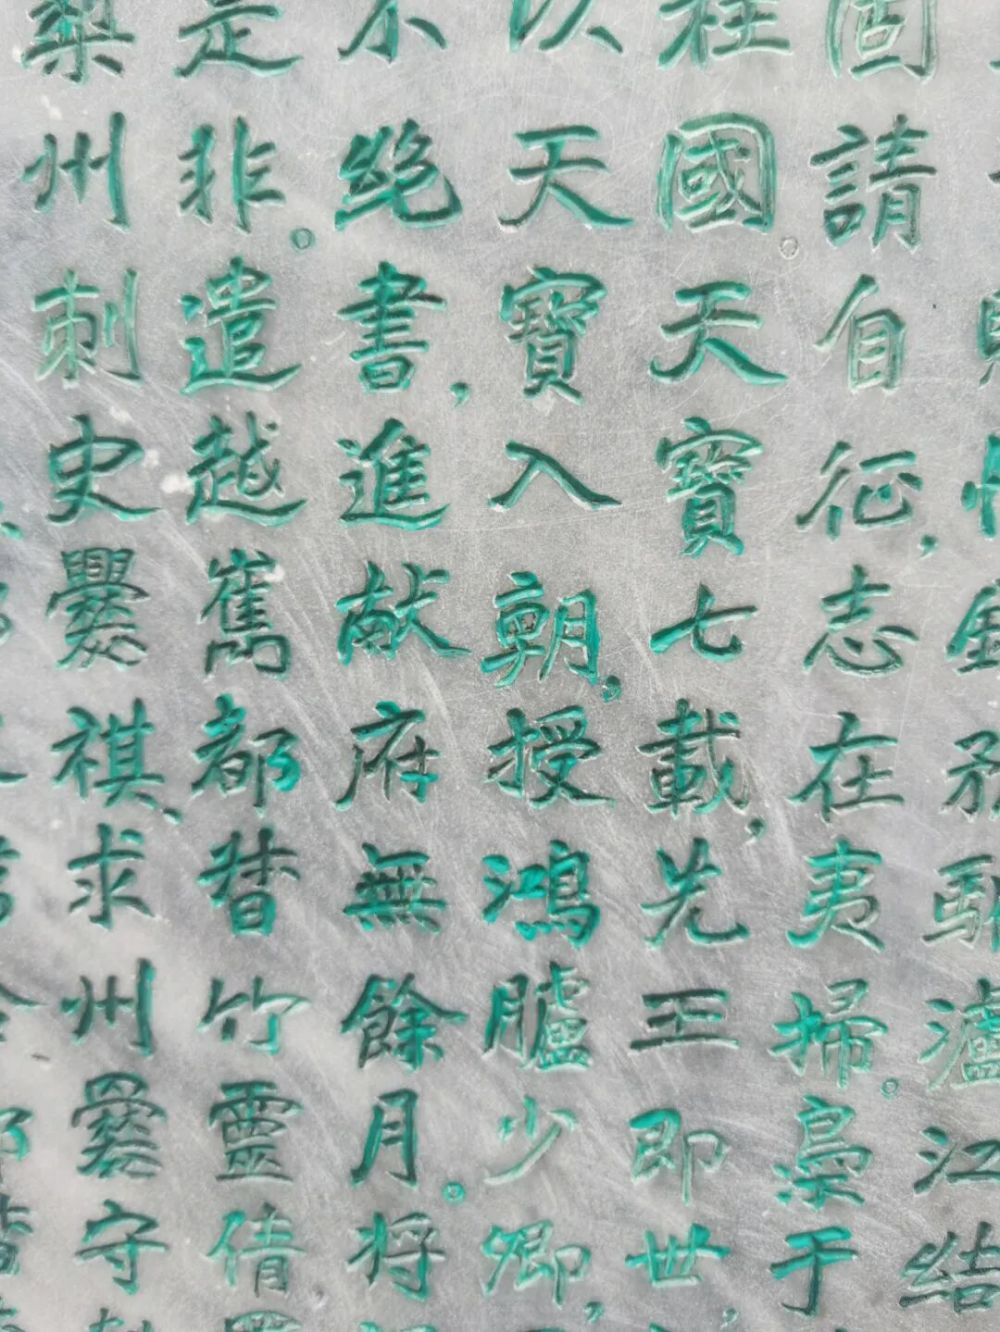 瀘江結
固請自征,志在夷掃。梟于
柱國。天寶七載,先王即世,
以天寶入朝,授鴻臚少卿,
不絕書,進献府無餘月。将
是非。遣越嶲都督竹靈倩
州刺史爨祺、求州爨守